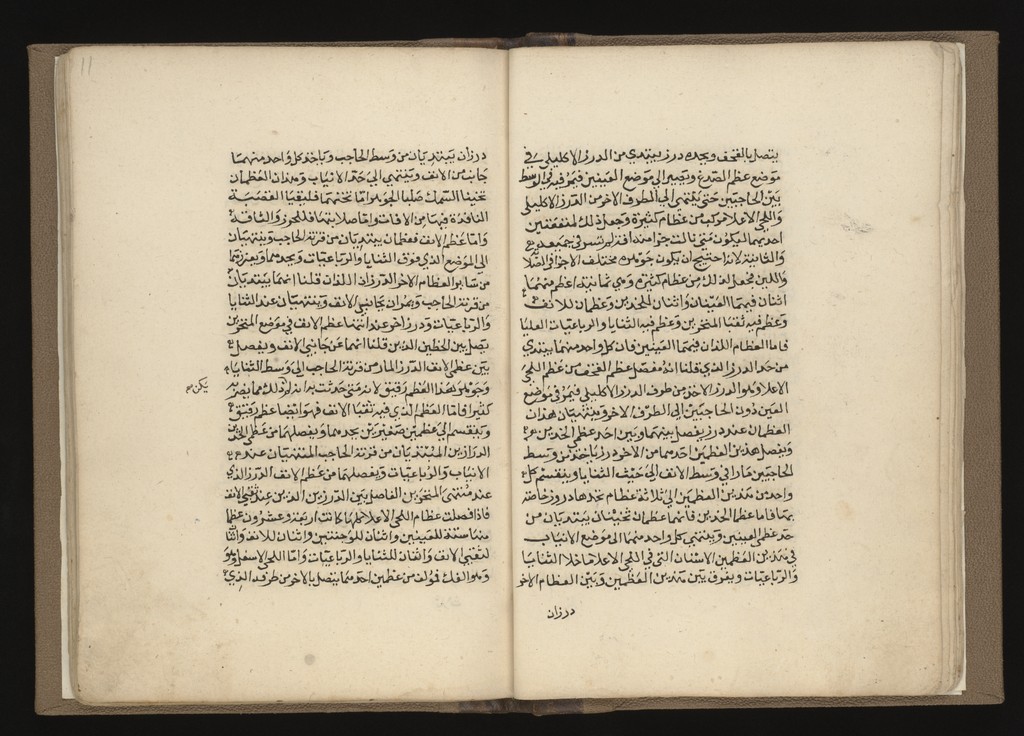 يتصل بالقحف ويحده درز يبتدي من الدرز الاكليلي في
موضع عظم الصدغ ويصير الي موضع العينين فيمر فيه في الوسط
بين الحاجبين حتى ينتهي الى الطرف الاخر من الدرز الاكليلي
واللحي الاعلا مركب من عظام كثيرة وجعل ذلك لمنفعتين
احديهما ليكون متى نالت جزا منه افة لم تسر في جميعه
والثانية لانه احتيج ان يكون جوهره مختلف الاجزا في الصلابة
واللين فجعل لذلك من عظام كثيرة وهي ثمانية اعظم منها
اثنان فيهما العينان واثنان للخدين وعظمان للانف
وعظم فيه ثقبا المنخرين وعظم فيه الثنايا والرباعيات العليا
فاما العظام اللذان فيهما العينين فان كل واحد منهما يبتدي
من حد الدرز الذي قلنا انه مفصل عظم القحف من عظم اللحي
الاعلا وهو الدرز الاخذ من طرف الدرز الاكليلي فيمر في موضع
العين دون الحاجبين الى الطرف الاخر وينتهيان هذان
العظمان عند درز يفصل بينهما وبين احد عظمي الخدين
ويفصل هذين العظمين احدهما من الاخر درز ياخذ من وسط
الحاجبين مارا في وسط الانف الى حيث الثنايا وينقسم كل
واحد من هذين العظمين الى ثلاثة عظام تحدها دروز خاصة
بها فاما عظما الخدين فانهما عظمان ثخينان يبتديان من
حد عظمي العينين وينتهي كل واحد منهما الى موضع الانياب
في هذين العظمين الاسنان التي في اللحي الاعلا ما خلا الثنايا
والرباعيات ويفرق بين هذين العظمين وبين العظام الاخر
درزان
11
درزان يبتديان من وسط الحاجب وياخذ كل واحد منهما
جانب من الانف وينتهي الي حد الانياب وهذان العظمان
ثخينا السمك صلبا الجوهر اما ثخنهما فليقيا العصبة
النافذة فيها من الافات واما صلابتهما فللحرز والثاقة
واما عظم الانف فعظمان يبتديان من قرنة الحاجب وينتهيان
الى الموضع الذي فوق الثنايا والرباعيات ويحدهما ويفرزهما
من ساير العظام الاخر الدرزان اللذان قلنا انهما يبتديان
من قرنة الحاجب ويمران بجانبي الانف وينتهيان عند الثنايا
والرباعيات ودرز اخر عند انتها عظم الانف في موضع المنخرين
يصل بين الخطين الذين قلنا انهما عن جانبي الانف ويفصل
بين عظمي الانف الدرز المار من قرنة الحاجب الى وسط الثنايا
وجوهر هذا العظم رقيق لانه متى حدثت به افة لم يكن ذلك مما يضر به
يكن صح
كثيرا فاما العظم الذي فيه ثقبا الانف فهو ايضا عظم رقيق
وينقسم الى عظمين صغيرين يحدهما ويفصلهما من عظمي الخدين
الدرازين المبتديان من قرنة الحاجب المنتهيان عند
الانياب والرباعيات ويفصلهما من عظم الانف الدرز الذي
عند منتهى المنخرين الفاصل بين الدرزين الذين عند ثقبي الانف
فاذا فصلت عظام اللحي الاعلا كلها كانت اربعة وعشرون عظما
منها ستة للعينين واثنان للوجنتين واثنان للانف واثنان
لثقبي الانف واثنان للثنايا والرباعيات واما اللحي الاسفل وهو
وهو الفك فمولف من عظمين احدهما يتصل بالاخر من طرفه الذي